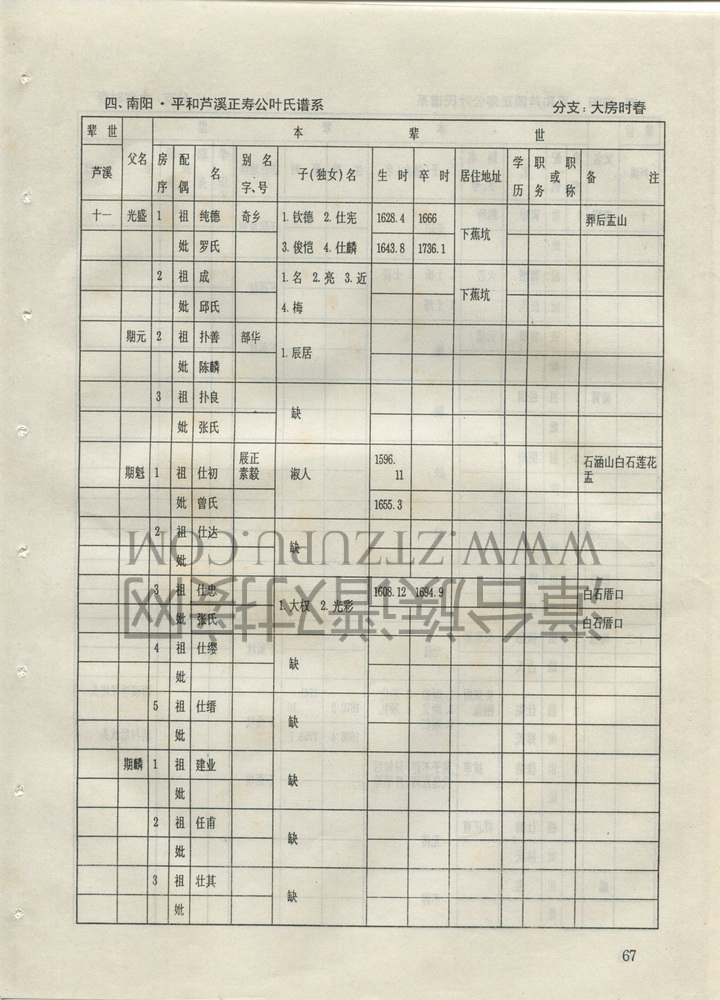 四、南阳·平和芦溪正寿公叶氏谱系 分支：大房时春
辈世 本辈世
芦溪 父名 房序 配偶 名 别名字、号 子(独女)名 生时 卒时 居住地址 学历 职务或职称 备注
十一 光盛 1 祖 纯德 奇乡 1.钦德 2.仕宪 1628.4 1666 下蕉坑 葬后盂山
妣 罗氏 3.俊恺 4.仕麟 1643.8 1736.1
2 祖 成 1.名 2.亮 3.近 下蕉坑
妣 邱氏 4.梅
期元 2 祖 扑善 部华 1.辰居
妣 陈麟
3 祖 扑良 缺
妣 张氏
期魁 1 祖 仕初 展正素毅 淑人 1596.11 石涵山白石莲花盂
妣 曾氏 1655.3
2 祖 仕达 缺
妣
3 祖 仕忠 1.大权 2.光彩 1608.12 1694.9 白石厝口
妣 张氏 白石厝口
4 祖 仕缨 缺
妣
5 祖 仕缙 缺
妣
期麟 1 祖 建业 缺
妣
2 祖 任甫 缺
妣
3 祖 壮其 缺
妣
67
WWW.ZTZUPU.COM
漳台族谱对接网